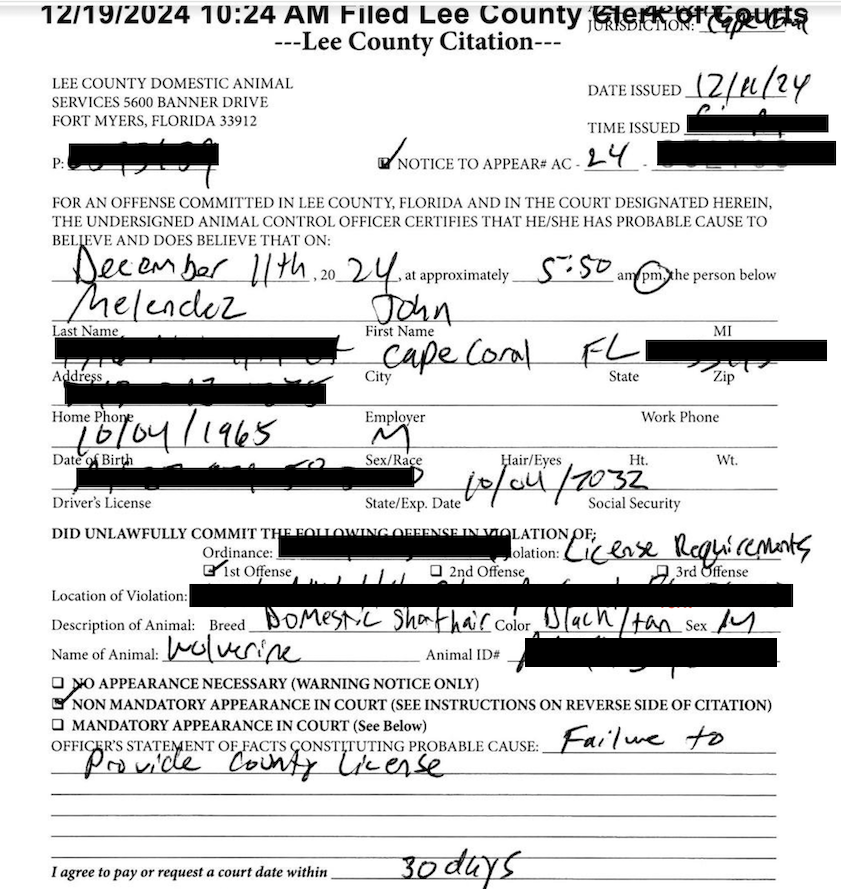 12/19/2024 10:24 AM Filed Lee County Clerk of Courts
JURISDICTION: Cape
---Lee County Citation---
LEE COUNTY DOMESTIC ANIMAL
SERVICES 5600 BANNER DRIVE
FORT MYERS, FLORIDA 33912
DATE ISSUED 12/11/24
TIME ISSUED
P:
NOTICE TO APPEAR# AC - 24 -
FOR AN OFFENSE COMMITTED IN LEE COUNTY, FLORIDA AND IN THE COURT DESIGNATED HEREIN,
THE UNDERSIGNED ANIMAL CONTROL OFFICER CERTIFIES THAT HE/SHE HAS PROBABLE CAUSE TO
BELIEVE AND DOES BELIEVE THAT ON:
December 11th, 2024, at approximately 5:50 am/pm, the person below
Melendez John
Last Name First Name MI
Cape Coral FL
Address City State Zip
Home Phone Employer Work Phone
10/04/1965 M
Date of Birth Sex/Race Hair/Eyes Ht. Wt.
10/04/2032
Driver's License State/Exp. Date Social Security
DID UNLAWFULLY COMMIT THE FOLLOWING OFFENSE IN VIOLATION OF:
Ordinance: olation: License Requirements
1st Offense 2nd Offense 3rd Offense
Location of Violation:
Description of Animal: Breed Domestic Shorthair Color Black/tan Sex M
Name of Animal: Wolverine Animal ID#
NO APPEARANCE NECESSARY (WARNING NOTICE ONLY)
NON MANDATORY APPEARANCE IN COURT (SEE INSTRUCTIONS ON REVERSE SIDE OF CITATION)
MANDATORY APPEARANCE IN COURT (See Below)
OFFICER'S STATEMENT OF FACTS CONSTITUTING PROBABLE CAUSE: Failure to
Provide County License
I agree to pay or request a court date within 30 days